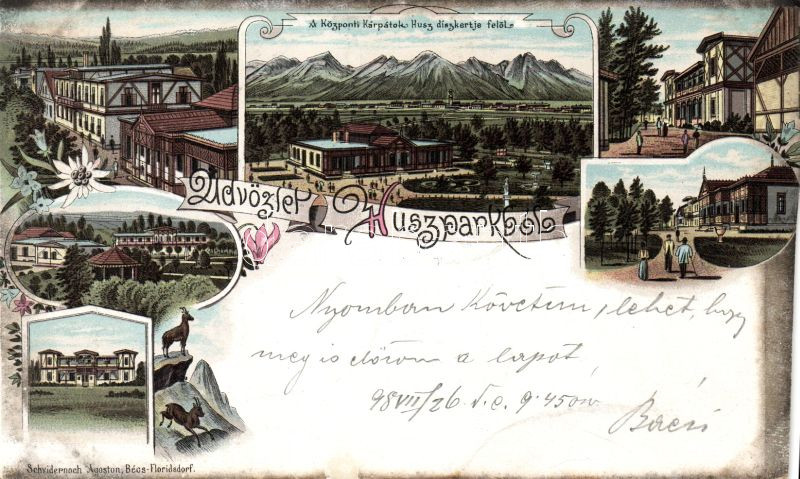 A Központi Kárpátok Husz diszkertje felöl.
Üdvözlet Huszparkból
Nyomban követem, lehet, hogy
meg is előzöm a lapot,
98 VII/26 d.e. 9.45
Bácsi
Schvidernoch Ágoston, Bécs-Floridsdorf.